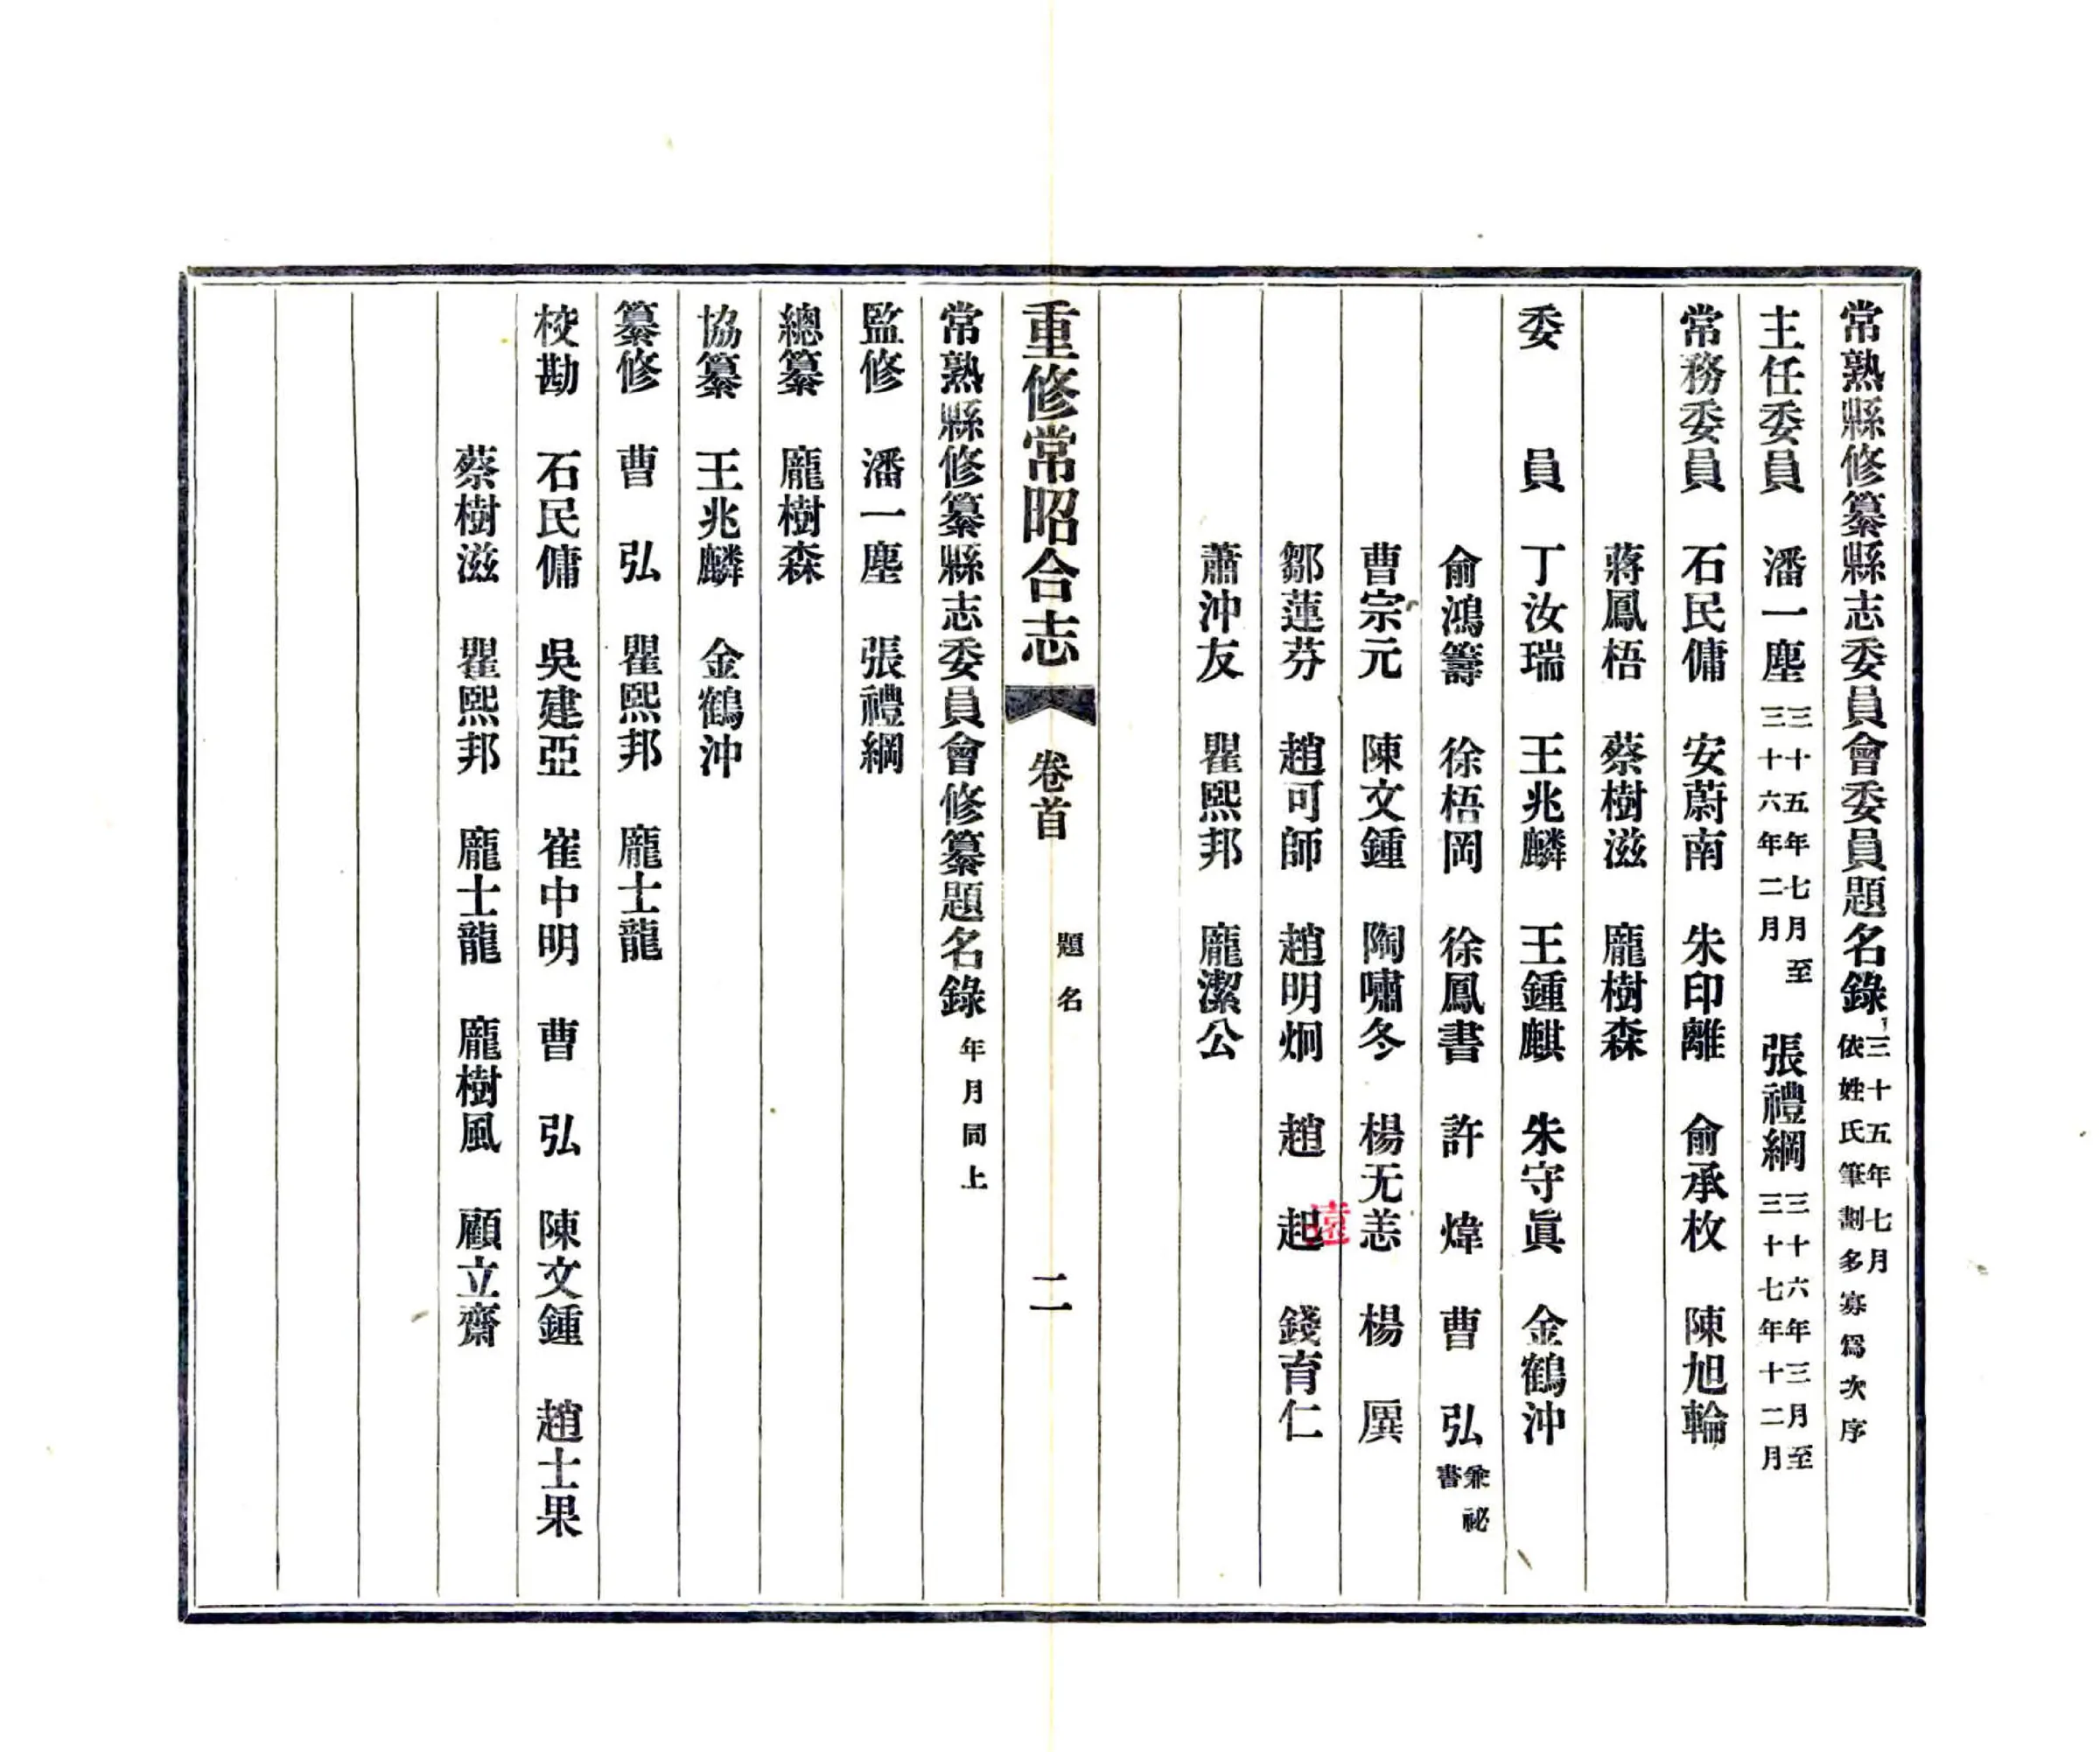 常熟縣修纂縣志委員會委員題名錄 三十五年七月 依姓氏筆劃多寡爲次序
主任委員 潘一塵 三十五年七月至三十六年二月 張禮綱 三十六年三月至三十七年十二月
常務委員 石民傭 安蔚南 朱印離 俞承枚 陳旭輪
蔣鳳梧 蔡樹滋 龐樹森
委員 丁汝瑞 王兆麟 王鍾麒 朱守眞 金鶴沖
俞鴻籌 徐梧岡 徐鳳書 許煒 曹弘 兼祕書
曹宗元 陳文鍾 陶嘯冬 楊无恙 楊㒷
鄒蓮芬 趙可師 趙明炯 趙起 遠 錢育仁
蕭沖友 瞿熙邦 龐潔公
重修常昭合志 卷首 題名 二
常熟縣修纂縣志委員會修纂題名錄 年月同上
監修 潘一塵 張禮綱
總纂 龐樹森
協纂 王兆麟 金鶴沖
纂修 曹弘 瞿熙邦 龐士龍
校勘 石民傭 吳建亞 崔中明 曹弘 陳文鍾 趙士果
蔡樹滋 瞿熙邦 龐士龍 龐樹風 顧立齋